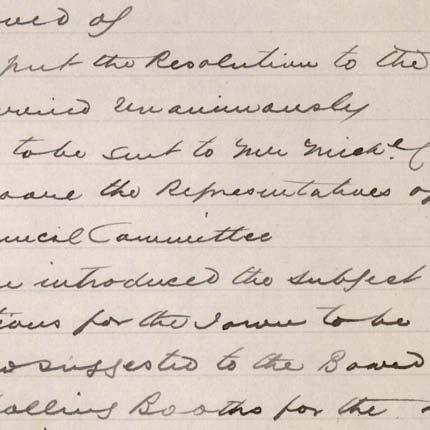 of
put the Resolution to the
Unanimously
to be sent to Mr Mich.l
the Representatives of
Committee
introduced the subject
tions for the Town to be
suggested to the Board
olling Booths for the